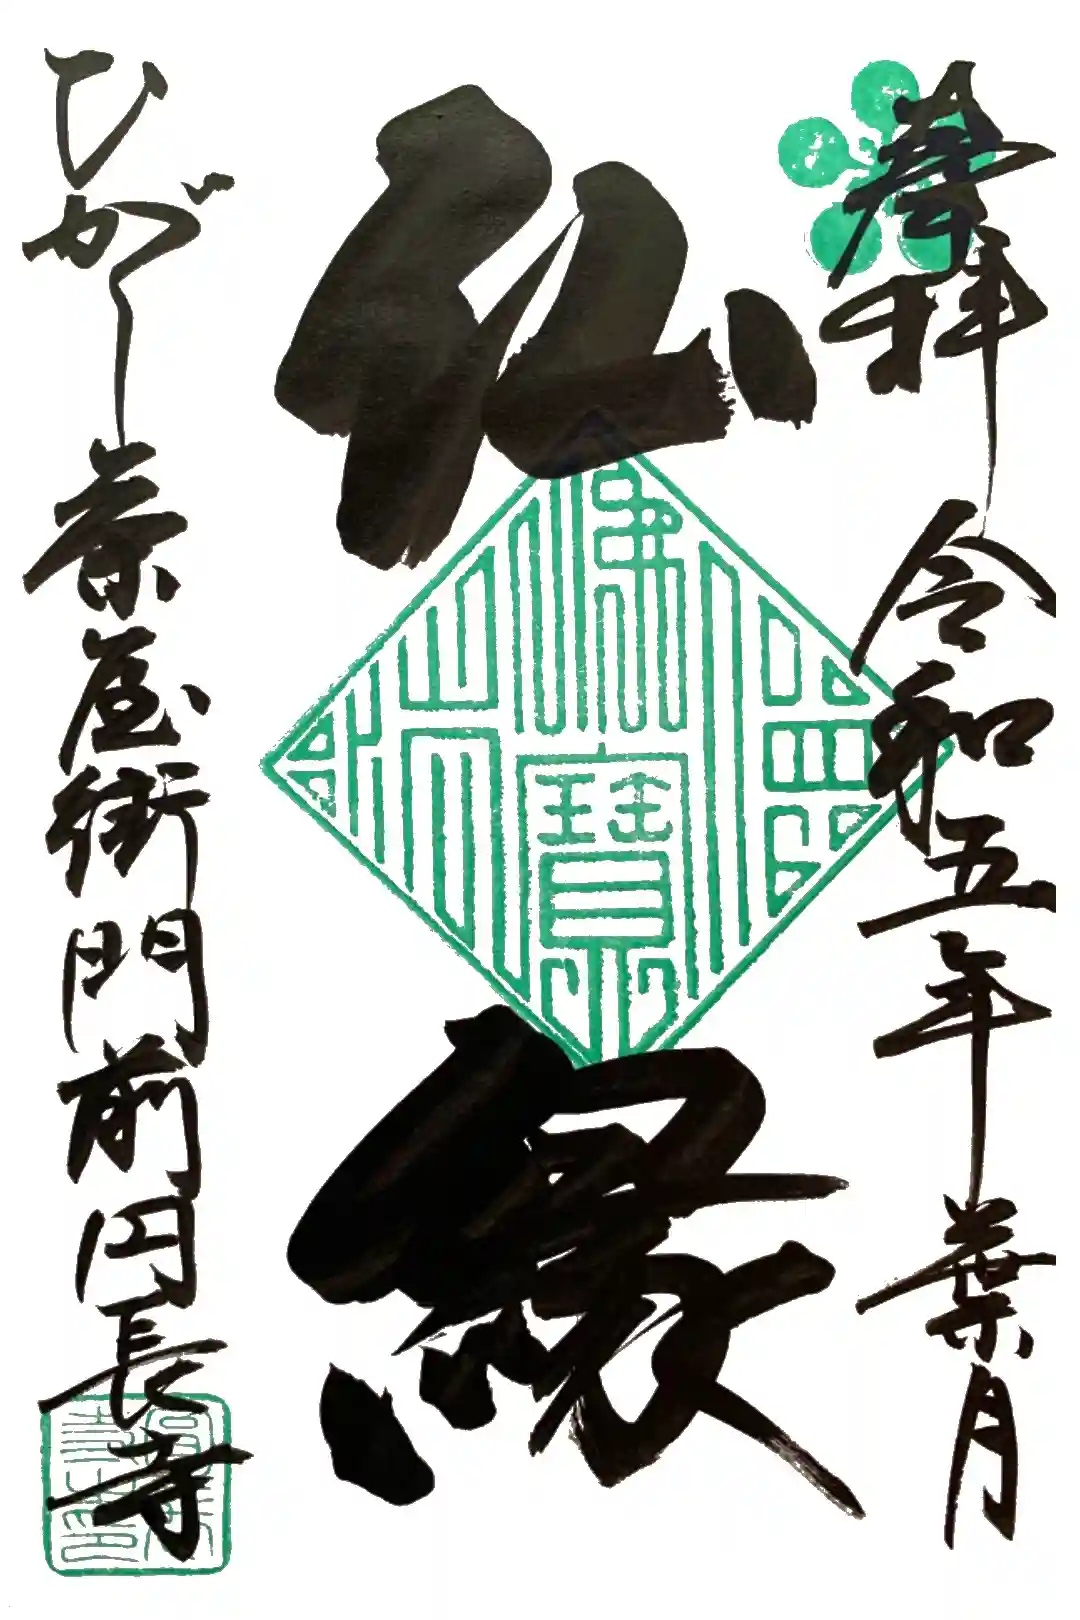 奉拝 令和五年葉月
仏縁
佛法僧寶
ひがし茶屋街門前円長寺